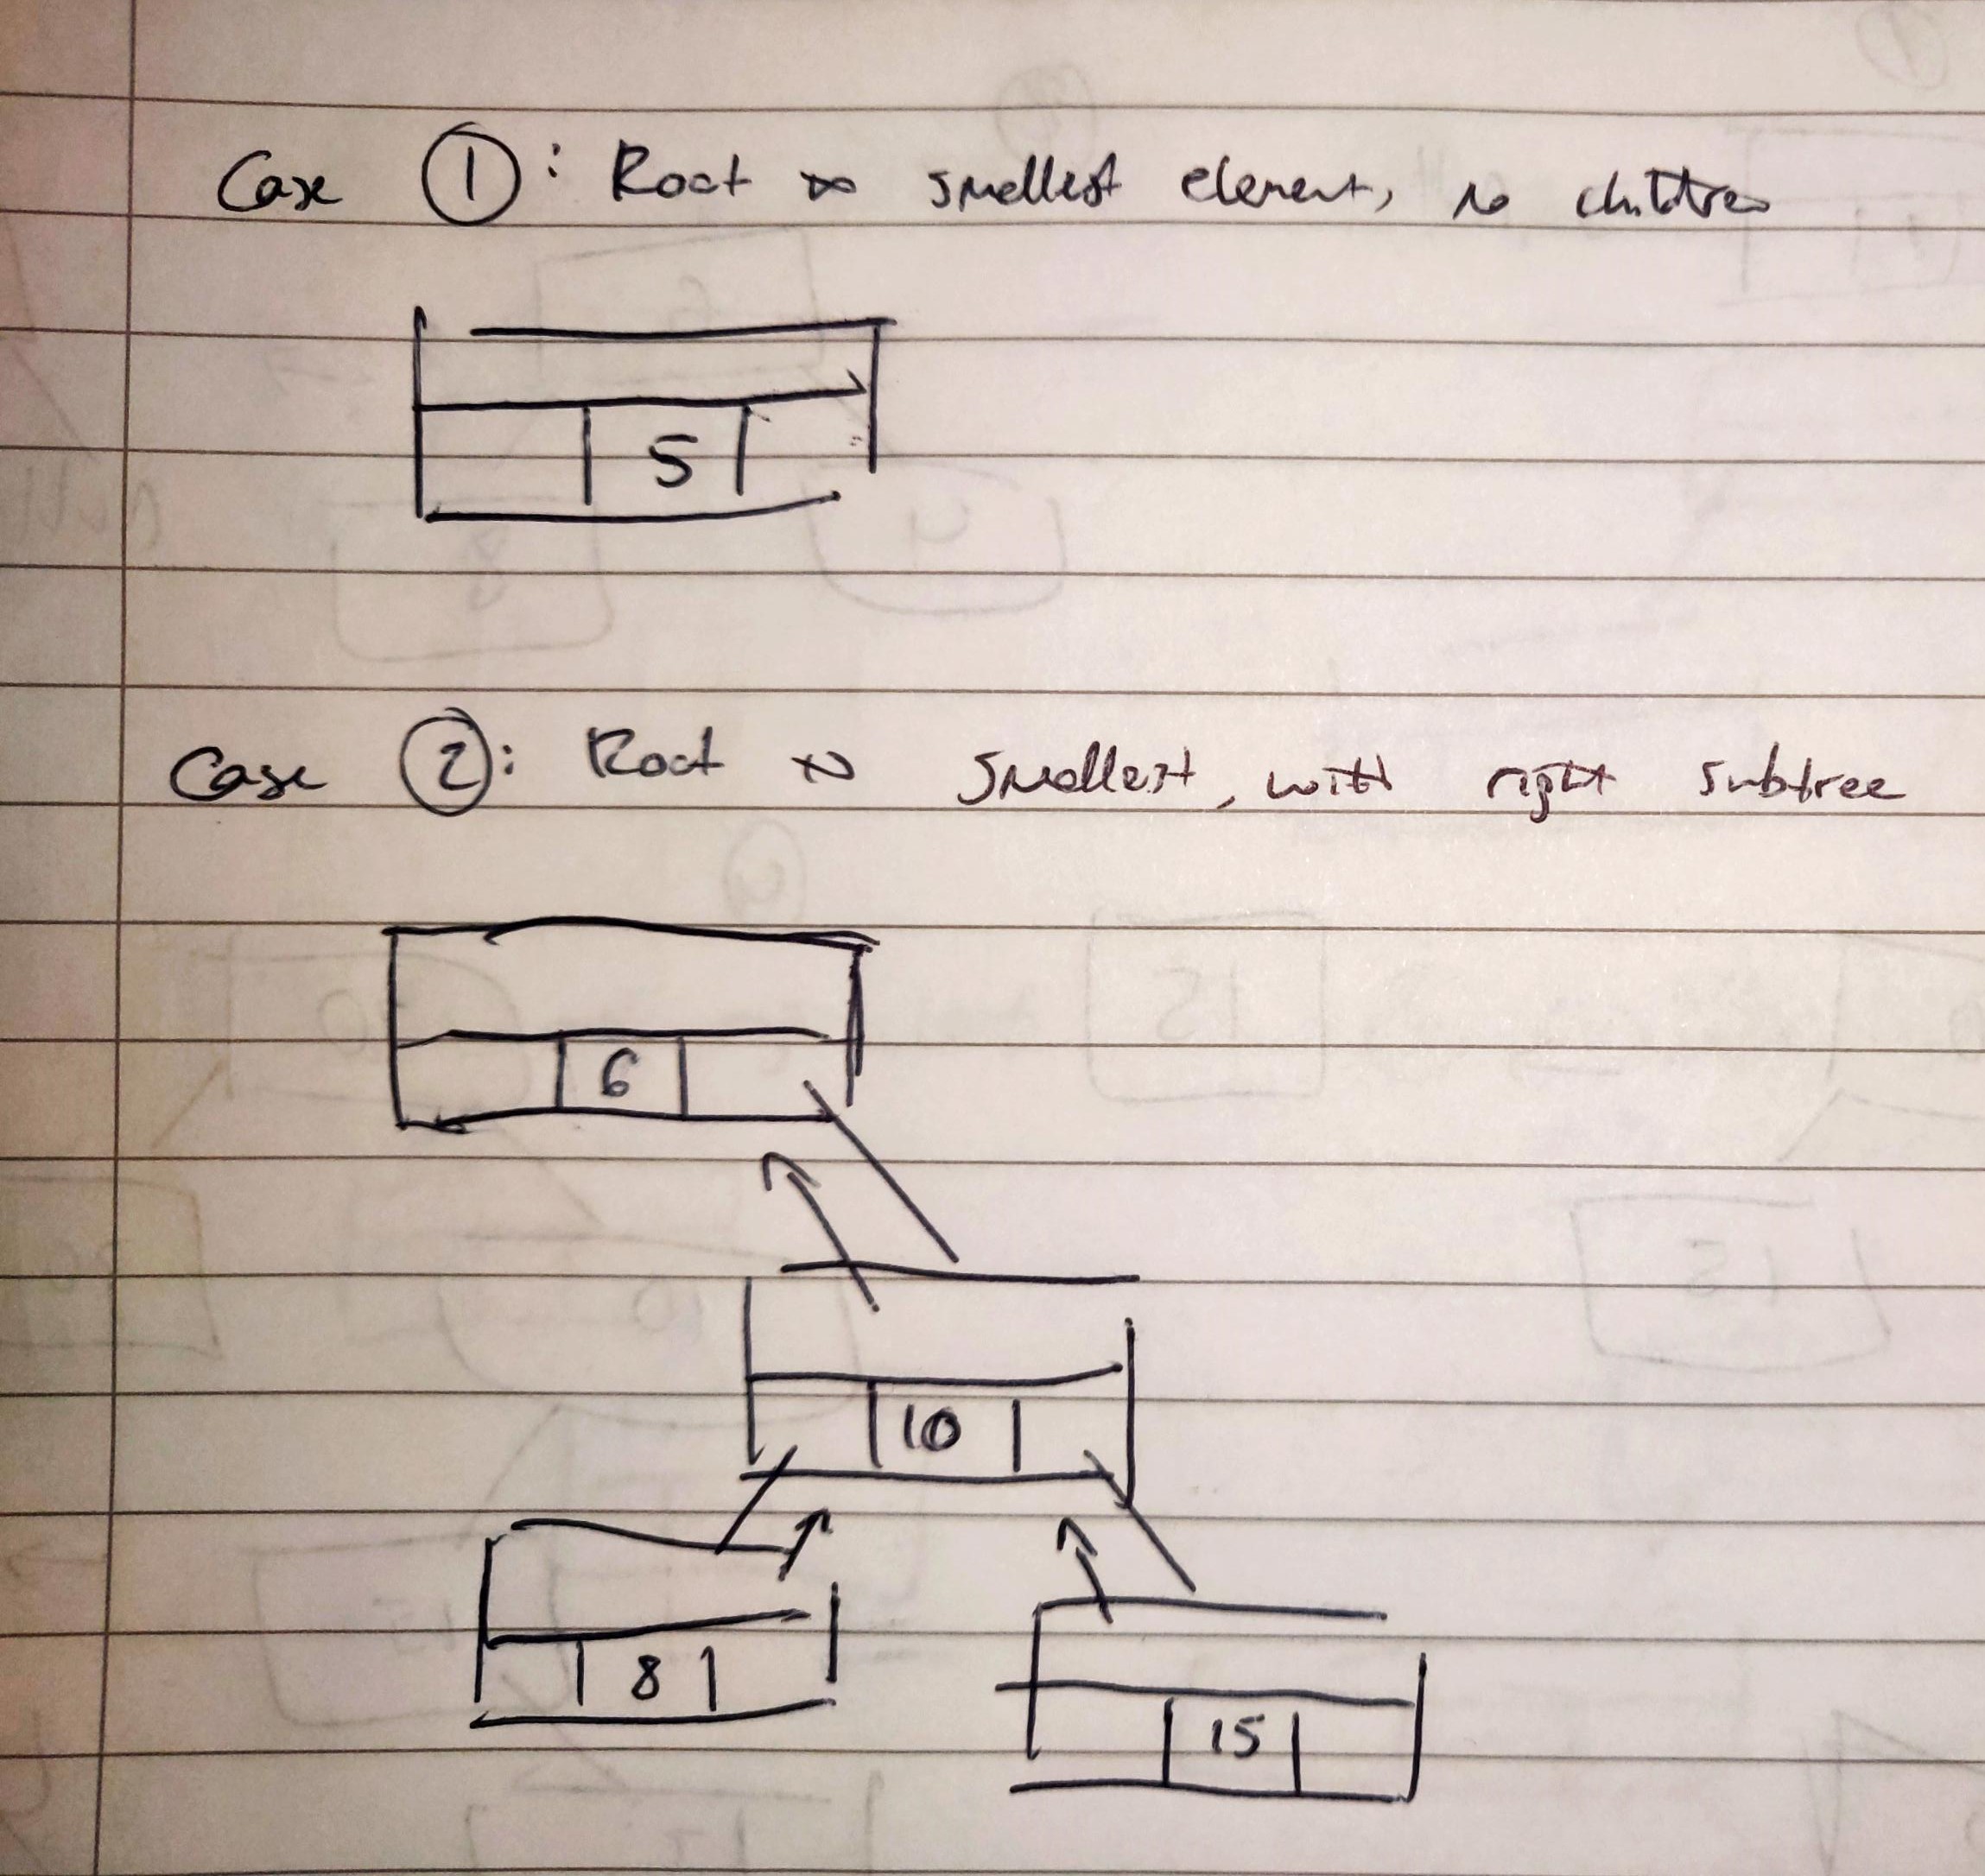 Case ①: Root is smallest element, no children
5
Case ②: Root is smallest, with right subtree
6
10
8
15